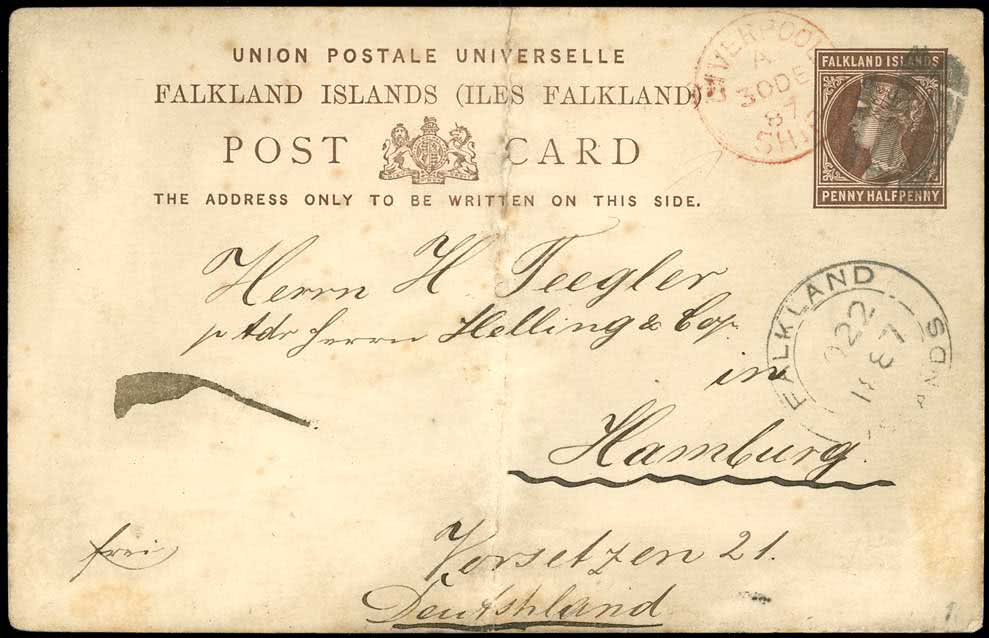 UNION POSTALE UNIVERSELLE
FALKLAND ISLANDS (ILES FALKLAND)
POST CARD
THE ADDRESS ONLY TO BE WRITTEN ON THIS SIDE.
LIVERPOOL
A
30 DE
87
SHIP
FALKLAND ISLANDS
PENNY HALFPENNY
Herrn H Teegler
p Adr Herrn Helling & Co.
in
Hamburg.
Vorsetzen 21.
Deutschland
frei
FALKLAND
22
87